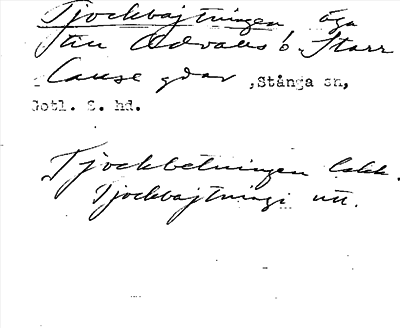 Tjockbajtningen äga
Stu Odvalls o. Starr
Clause gdar, Stånga sn,
Gotl. S. hd.
Tjockbetningen lakk.
Tjockbajtningi utt.